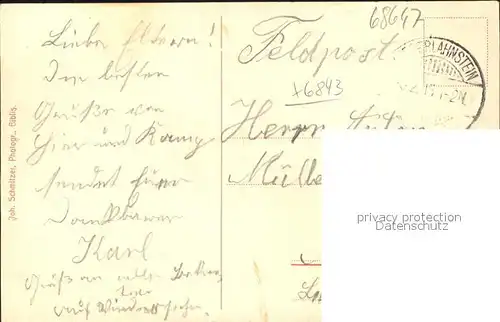 Liebe Eltern!
Die besten
Grüße von
hier und Kamp
sendet Euer
Dankbarer
Karl
Gruß an alle
auf Wiedersehn.
Joh. Schnitzel, Photogr.,
68647
Feldpost.
LAHNSTEIN
+6843
Herrn Anton
Mülle
privacy protection
Datenschutz